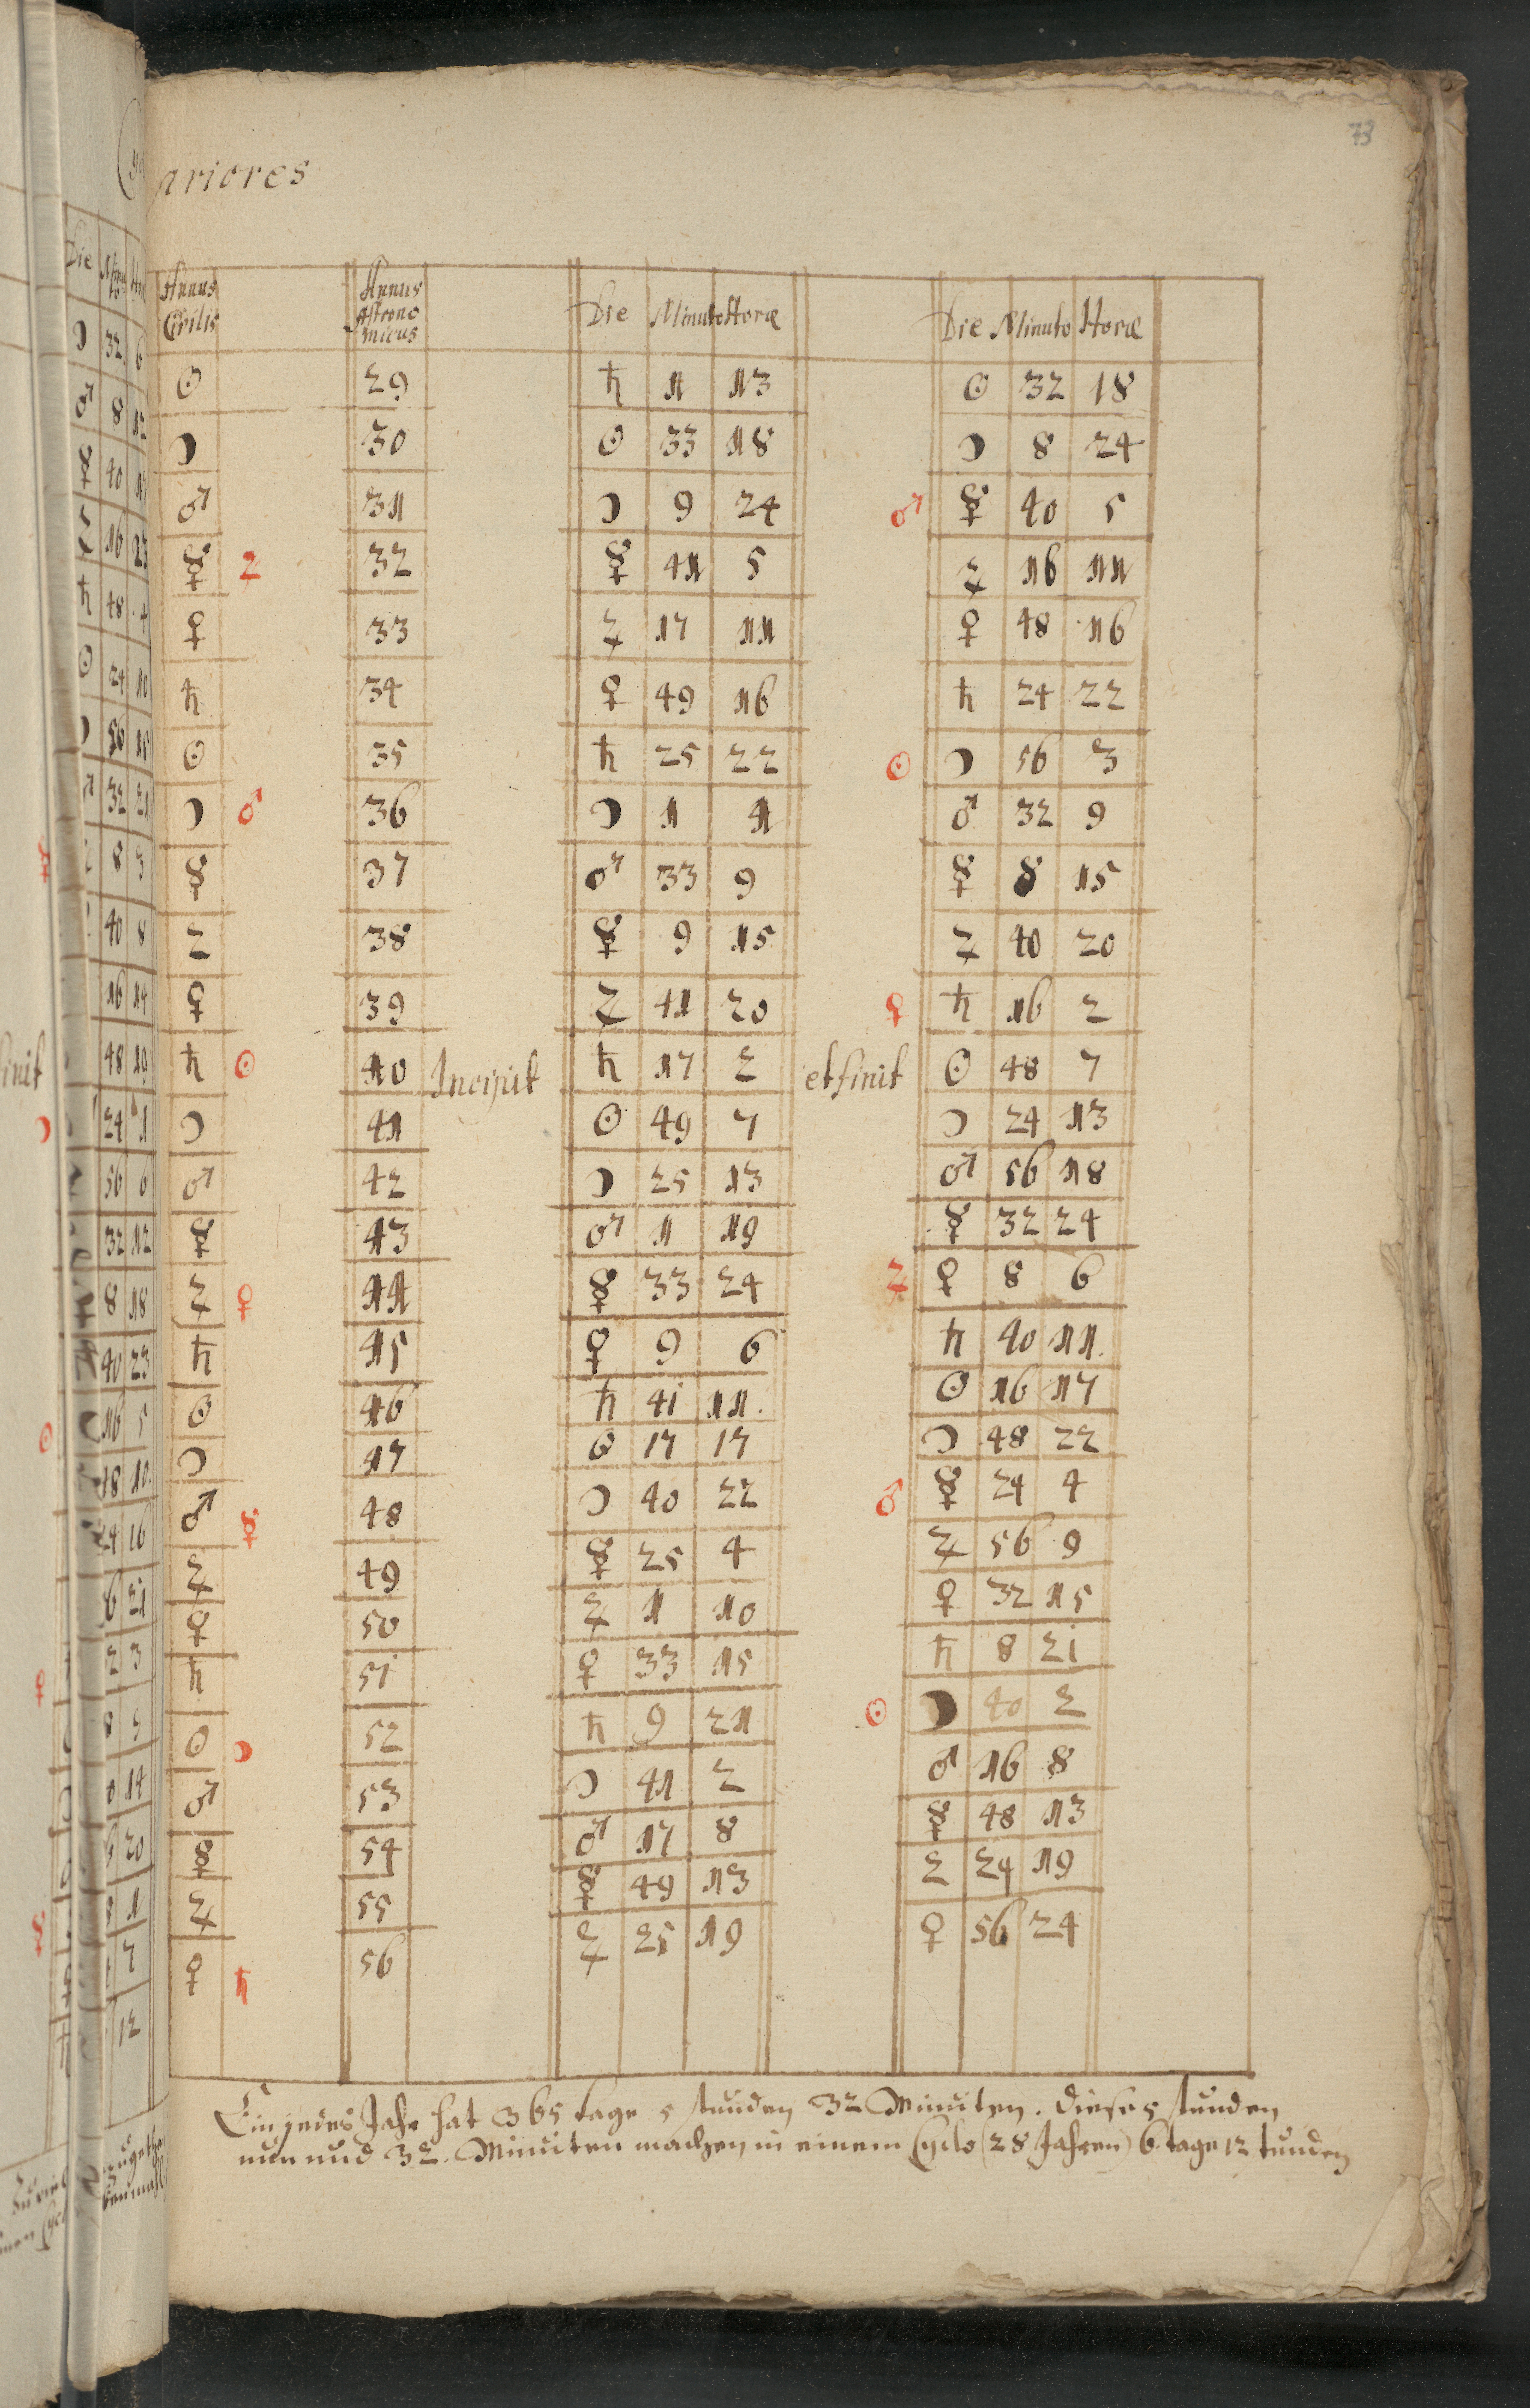 73
ariores
Annus Civilis Annus Astronomicus Die Minuto Horæ Die Minuto Horæ
☉ 29 ♄ 1 13 ☉ 32 18
☽ 30 ☉ 33 18 ☽ 8 24
♂ 31 ☽ 9 24 ♂ ☿ 40 5
☿ ♃ 32 ☿ 41 5 ♃ 16 11
♀ 33 ♃ 17 11 ♀ 48 16
♄ 34 ♀ 49 16 ♄ 24 22
☉ 35 ♄ 25 22 ☉ ☽ 56 3
☽ ♂ 36 ☽ 1 4 ♂ 32 9
☿ 37 ♂ 33 9 ☿ 8 15
♃ 38 ☿ 9 15 ♃ 40 20
♀ 39 ♃ 41 20 ♀ ♄ 16 2
♄ ☉ 40 Incipit ♄ 17 2 et finit ☉ 48 7
☽ 41 ☉ 49 7 ☽ 24 13
♂ 42 ☽ 25 13 ♂ 56 18
☿ 43 ♂ 1 19 ☿ 32 24
♃ ♀ 44 ☿ 33 24 ♃ ♀ 8 6
♄ 45 ♀ 9 6 ♄ 40 11
☉ 46 ♄ 41 11 ☉ 16 17
☽ 47 ☉ 17 17 ☽ 48 22
♂ ☿ 48 ☽ 40 22 ♂ ☿ 24 4
♃ 49 ☿ 25 4 ♃ 56 9
♀ 50 ♃ 1 10 ♀ 32 15
♄ 51 ♀ 33 15 ♄ 8 21
☉ ☽ 52 ♄ 9 21 ☉ ☽ 40 2
♂ 53 ☽ 41 2 ♂ 16 8
☿ 54 ♂ 17 8 ☿ 48 13
♃ 55 ☿ 49 13 ♃ 24 19
♀ ♄ 56 ♃ 25 19 ♀ 56 24
Ein jedes Jahr hat 365 tage 5 stunden 32 Minuten. Diese 5 stunden
nun und 32. Minuten machen in einem Cyclo (28 Jahren) 6. tage 12 tunden